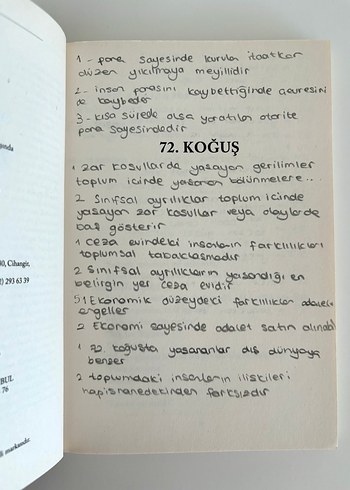 1 - para sayesinde kurulan itaatkar
düzen yıkılmaya meyillidir
2 - insan parasını kaybettiğinde çevresini
de kaybeder
3 - kısa sürede olsa yaratılan otorite
para sayesindedir
72. KOĞUŞ
1 zor koşullarda yaşayan gerilimler
toplum içinde yaşanan bölünmelere...
2 Sınıfsal ayrılıklar toplum içinde
yaşayan zor koşullar veya olaylarda
baş gösterir
1 ceza evindeki insanların farklılıkları
toplumsal tabakalaşmadır
2 Sınıfsal ayrılıkların yaşandığı en
belirgin yer ceza evidir
51 Ekonomik düzeydeki farklılıklar adaleti
engeller
2 Ekonomi sayesinde adalet satın alınabil
1 72. koğuşta yaşananlar dış dünyaya
benzer
2 toplumdaki insanların ilişkileri
hapishanedekinden farksızdır
00, Cihangir,
2) 293 63 39
BUL
76